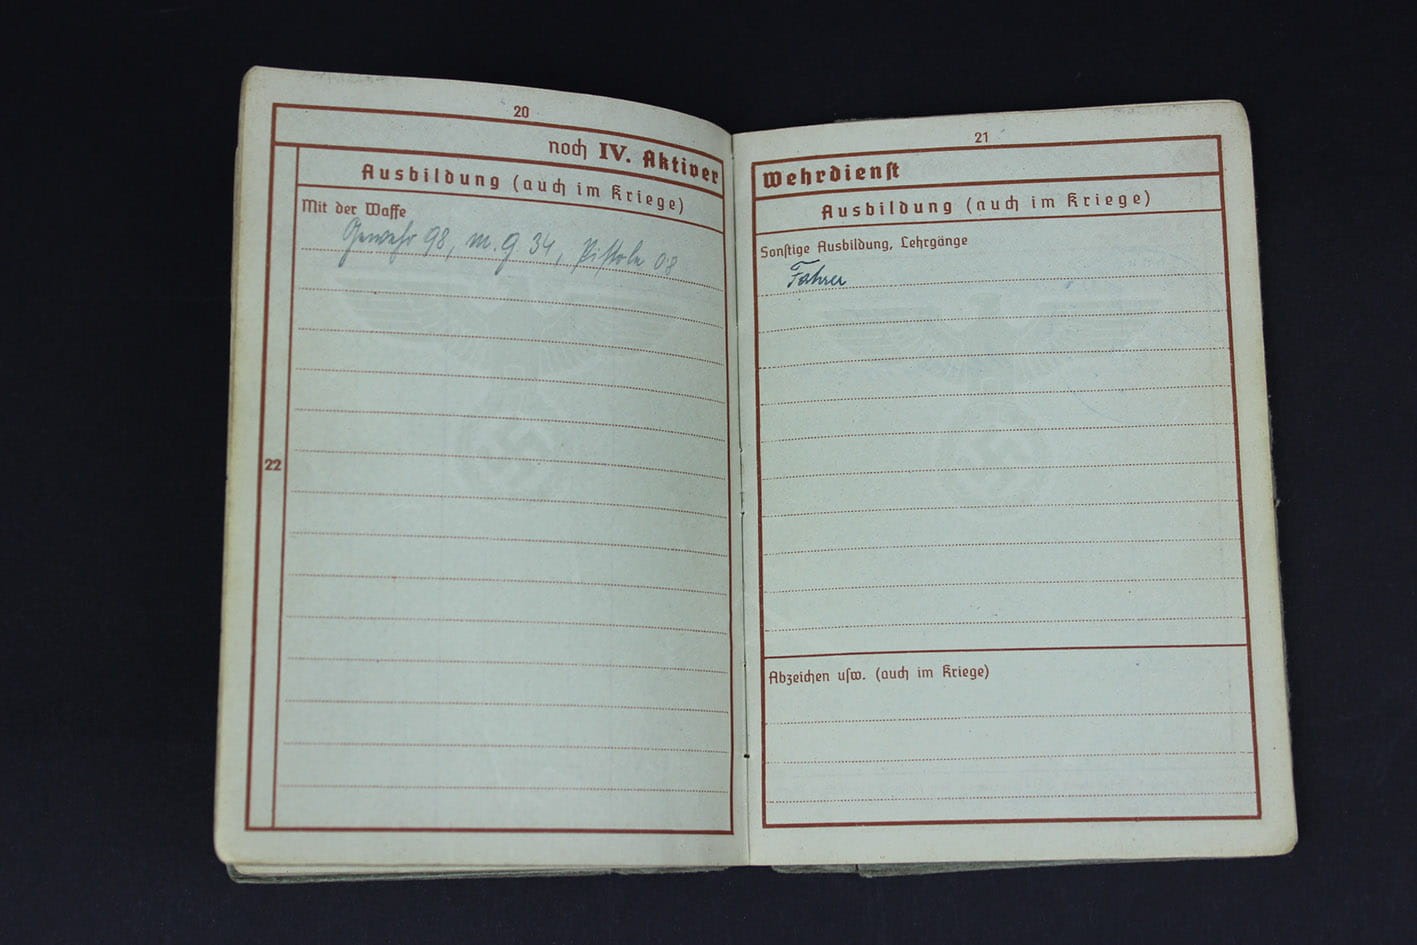 20
noch IV. Aktiver
Ausbildung (auch im Kriege)
Mit der Waffe
Gewehr 98, m. G 34, Pistole 08
22
21
Wehrdienst
Ausbildung (auch im Kriege)
Sonstige Ausbildung, Lehrgänge
Fahrer
Abzeichen usw. (auch im Kriege)